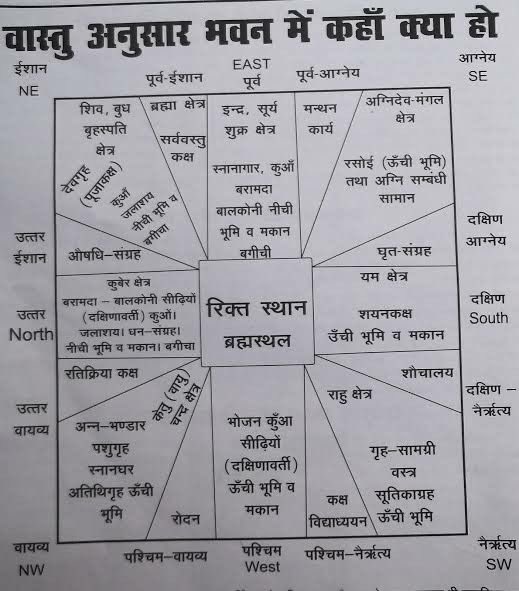 वास्तु अनुसार भवन में कहाँ क्या हो
ईशान
NE
पूर्व-ईशान
EAST
पूर्व
पूर्व-आग्नेय
आग्नेय
SE
शिव, बुध
बृहस्पति
क्षेत्र
देवगृह
(पूजाकक्ष)
कुआँ
जलाशय
नीची भूमि व
बगीचा
ब्रह्मा क्षेत्र
सर्ववस्तु
कक्ष
इन्द्र, सूर्य
शुक्र क्षेत्र
स्नानागार, कुआँ
बरामदा
बालकोनी नीची
भूमि व मकान
बगीची
मन्थन
कार्य
अग्निदेव-मंगल
क्षेत्र
रसोई (ऊँची भूमि)
तथा अग्नि सम्बंधी
सामान
उत्तर
ईशान
औषधि-संग्रह
घृत-संग्रह
दक्षिण
आग्नेय
उत्तर
North
कुबेर क्षेत्र
बरामदा – बालकोनी सीढ़ियों
(दक्षिणावर्ती) कुओं।
जलाशय। धन-संग्रह।
नीची भूमि व मकान। बगीचा
रिक्त स्थान
ब्रह्मस्थल
यम क्षेत्र
शयनकक्ष
उँची भूमि व मकान
दक्षिण
South
उत्तर
वायव्य
रतिक्रिया कक्ष
केतु (वायु)
चन्द्र क्षेत्र
अन्न-भण्डार
पशुगृह
स्नानघर
अतिथिगृह ऊँची
भूमि
रोदन
भोजन कुँआ
सीढ़ियों
(दक्षिणावर्ती)
ऊँची भूमि व
मकान
राहु क्षेत्र
कक्ष
विद्याध्ययन
शौचालय
गृह-सामग्री
वस्त्र
सूतिकाग्रह
ऊँची भूमि
दक्षिण –
नैर्ऋत्य
वायव्य
NW
पश्चिम-वायव्य
पश्चिम
West
पश्चिम-नैर्ऋत्य
नैर्ऋत्य
SW